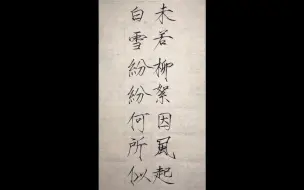 白雪紛紛何所似
未若柳絮因風起